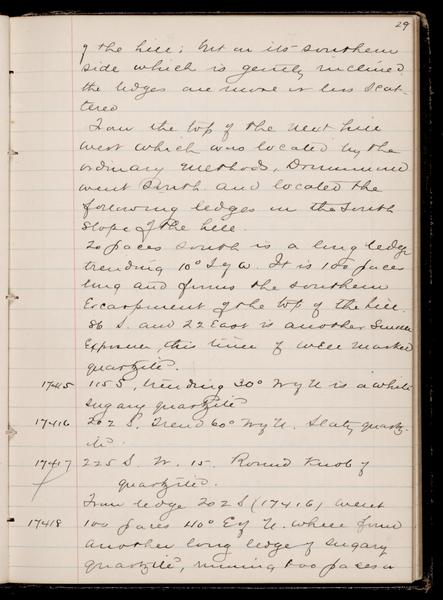 29
of the hill; but on its southern
side which is gently inclined
the ledges are more or less scat-
tered
From the top of the next hill
west which was located by the
ordinary methods, Drummond
went South and located the
following ledges on the South
slope of the hill.
20 paces South is a long ledge
trending 10° S of W. It is 100 paces
long and forms the southern
Escarpment of the top of the hill.
86 S. and 22 East is another
Exposure, this time of well marked
quartzite.
17415 115 S, trending 30° W of N is a white
sugary quartzite
17416 202 S. Trend 60° W of N. Slaty quartz-
ite.
17417 225 S. W. 15. Round Knob of
quartzite.
From ledge 202 S (17416) went
17418 100 paces 40° E of N. where found
another long ledge of sugary
quartzite, running 200 paces